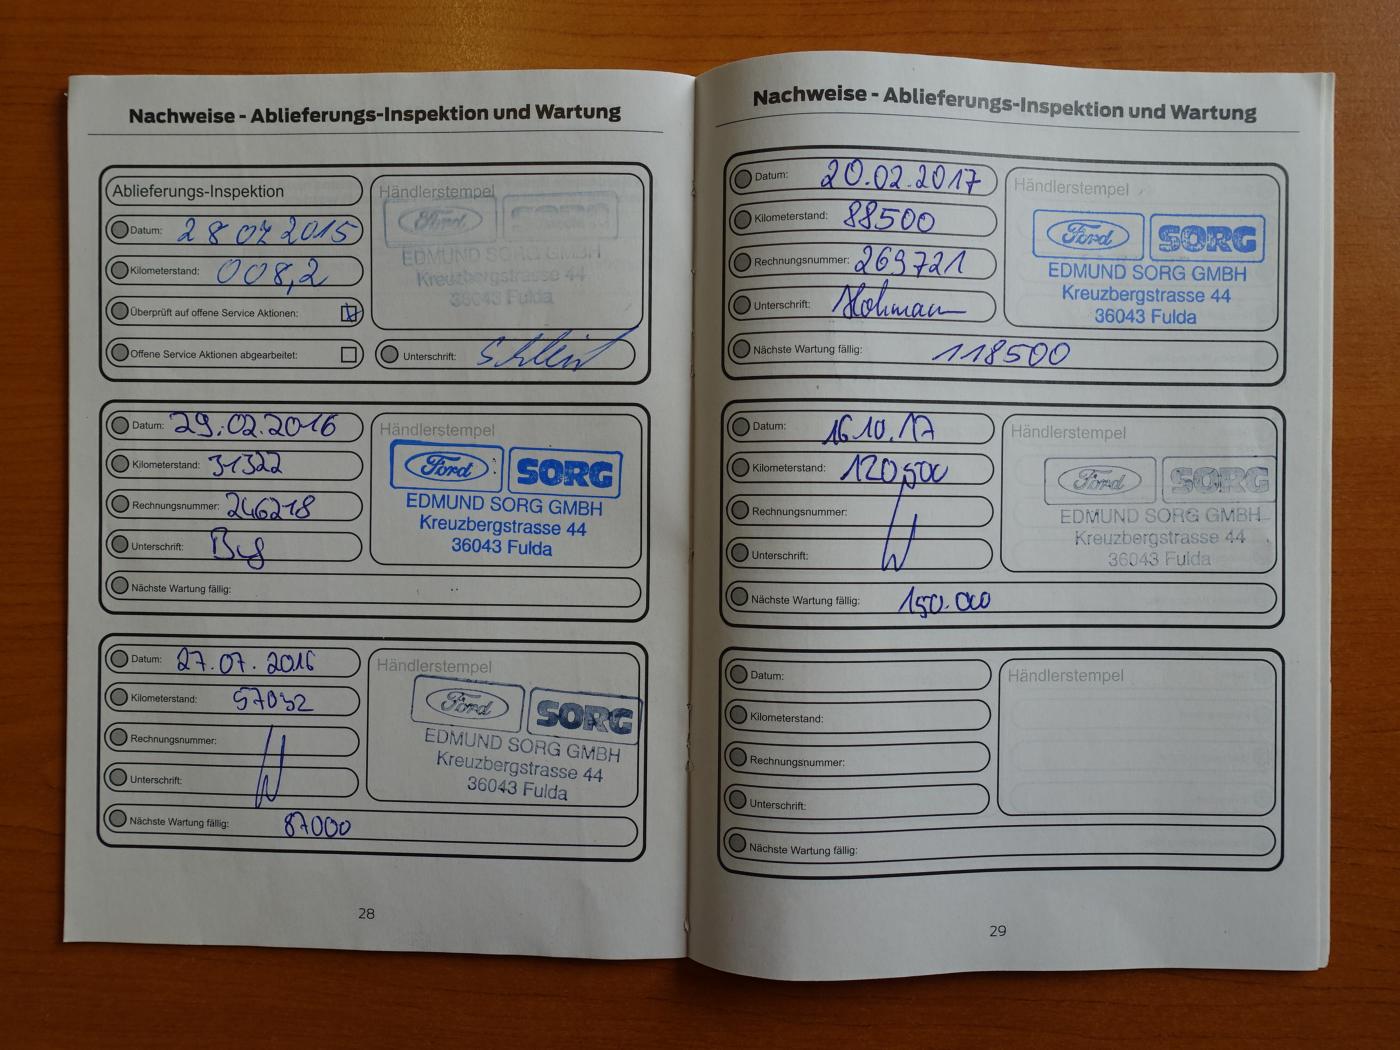 Nachweise - Ablieferungs-Inspektion und Wartung
Ablieferungs-Inspektion
Datum: 28 07 2015
Kilometerstand: 008,2
Überprüft auf offene Service Aktionen:
Offene Service Aktionen abgearbeitet:
Händlerstempel
Ford SORG
EDMUND SORG GMBH
Kreuzbergstrasse 44
36043 Fulda
Unterschrift:
Datum: 29.02.2016
Kilometerstand: 31322
Rechnungsnummer: 246218
Unterschrift:
Nächste Wartung fällig:
Händlerstempel
Ford SORG
EDMUND SORG GMBH
Kreuzbergstrasse 44
36043 Fulda
Datum: 27.07.2016
Kilometerstand: 57032
Rechnungsnummer:
Unterschrift:
Nächste Wartung fällig: 87000
Händlerstempel
Ford SORG
EDMUND SORG GMBH
Kreuzbergstrasse 44
36043 Fulda
28
Nachweise - Ablieferungs-Inspektion und Wartung
Datum: 20.02.2017
Kilometerstand: 88500
Rechnungsnummer: 269721
Unterschrift:
Nächste Wartung fällig: 118500
Händlerstempel
Ford SORG
EDMUND SORG GMBH
Kreuzbergstrasse 44
36043 Fulda
Datum: 16.10.17
Kilometerstand: 120500
Rechnungsnummer:
Unterschrift:
Nächste Wartung fällig: 150.000
Händlerstempel
Ford SORG
EDMUND SORG GMBH
Kreuzbergstrasse 44
36043 Fulda
Datum:
Kilometerstand:
Rechnungsnummer:
Unterschrift:
Nächste Wartung fällig:
Händlerstempel
29